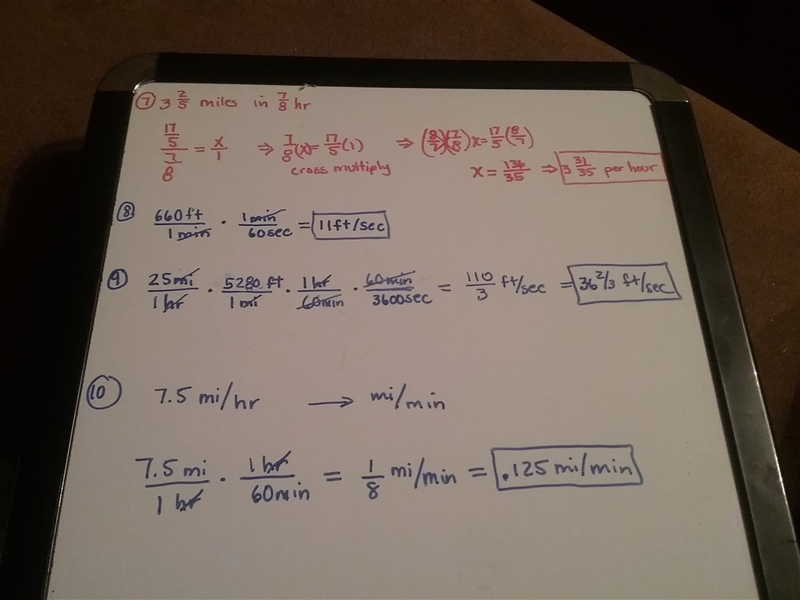 ⑦ 3 2/5 miles in 7/8 hr
(17/5)/(7/8) = x/1 ⇒ 7/8(x) = 17/5(1) ⇒ (8/7)(7/8)x = 17/5(8/7)
cross multiply
x = 136/35 ⇒ 3 31/35 per hour
⑧ 660 ft/1 min · 1 min/60 sec = 11 ft/sec
⑨ 25 mi/1 hr · 5280 ft/1 mi · 1 hr/60 min · 60 min/3600 sec = 110/3 ft/sec = 36 2/3 ft/sec
⑩ 7.5 mi/hr → mi/min
7.5 mi/1 hr · 1 hr/60 min = 1/8 mi/min = .125 mi/min